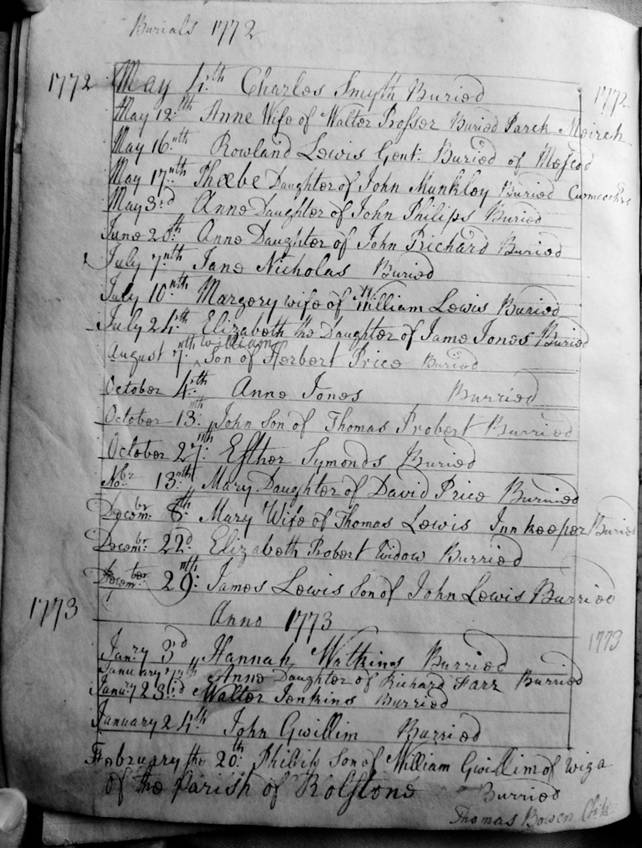 Burials 1772
1772 May 4:th Charles Smyth Buried 1772
May 12:th Anne Wife of Walter Prosser Buried Parck Meirch
May 16:nth Rowland Lewis Gent: Buried of
May 17:nth Phœbe Daughter of John Munkley Buried
May 3:d Anne Daughter of John Philips Buried
June 20:th Anne Daughter of John Prichard Buried
July 7:nth Jane Nicholas Buried
July 10:nth Margery wife of William Lewis Buried
July 24:th Elizabeth the Daughter of Jame Jones Buried
August 7:nth William Son of Herbert Price Buried
October 4:th Anne Jones Burried
October 13:nth John Son of Thomas Probert Burried
October 27:nth Esther Symonds Buried
Nobr 13:nth Mary Daughter of David Price Burried
Decembr: 8:th Mary Wife of Thomas Lewis Innkeeper Buried
Decembr: 22:d Elizabeth Probert Widow Burried
December: 29:nth James Lewis Son of John Lewis Burried
1773 Anno 1773 1773
Janry 3:d Hannah Wattkins Burried
January Anne Daughter of Richard Farr Burried
Janury 23:d Walter Jenkins Burried
January 24:th John Gwillim Burried
February the 20:th Philip Son of William Gwillim of Wiga
of the Parish of Rolstone Burried
Thomas Bowen